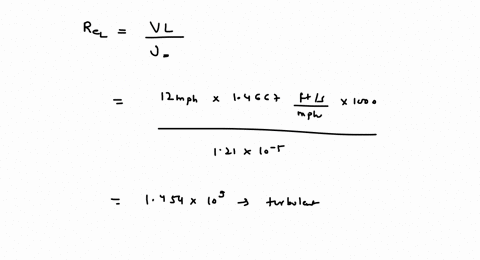 Re_L = VL / ν∞
= 12 mph × 1.4667 ft/s / mph × 1000 / 1.21 × 10^-5
= 1.454 × 10^9 → turbulent